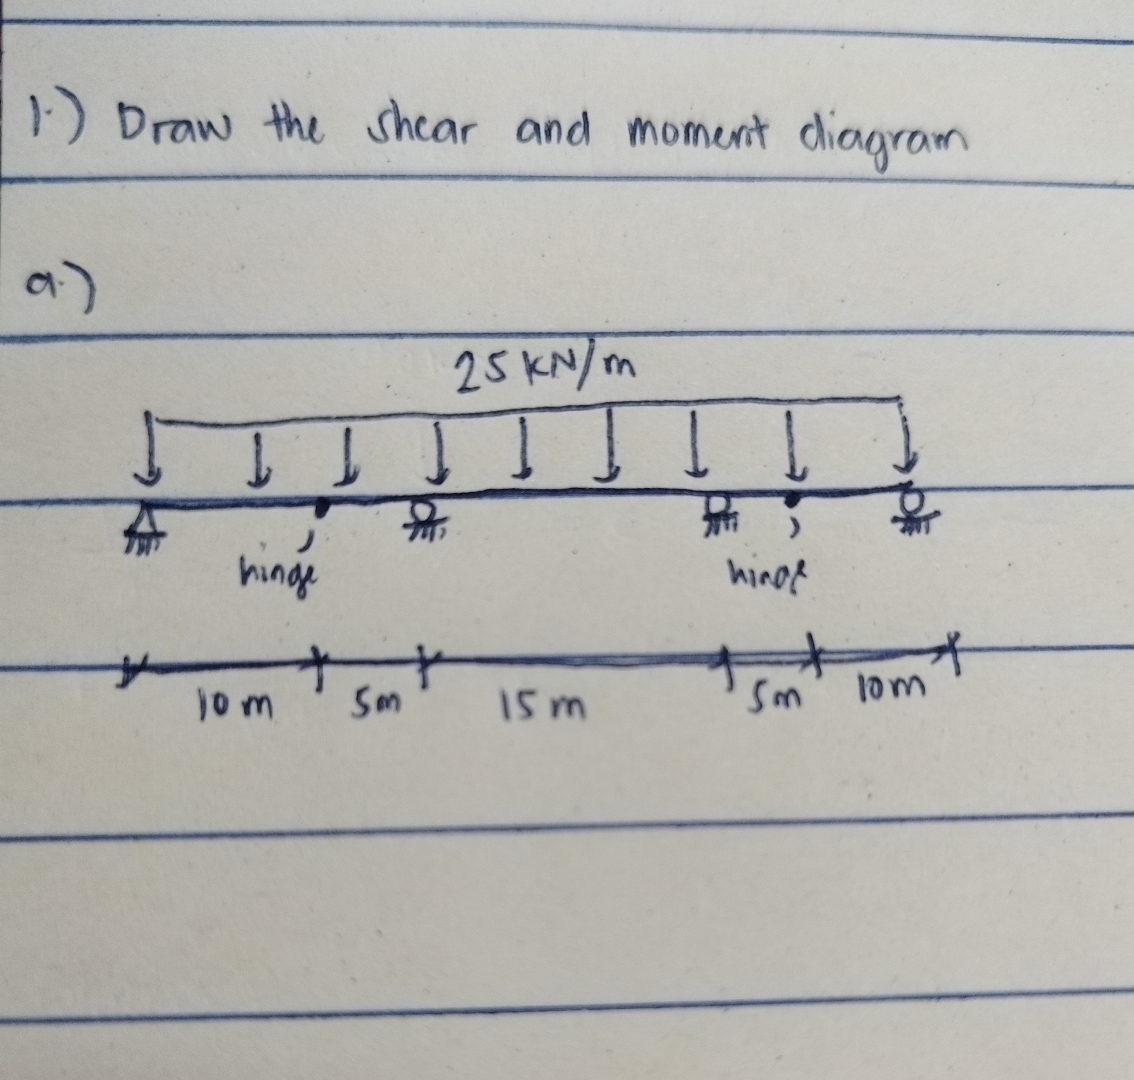 1.) Draw the shear and moment diagram
a.)
25 KN/m
hinge hinge
10 m 5m 15 m 5m 10m